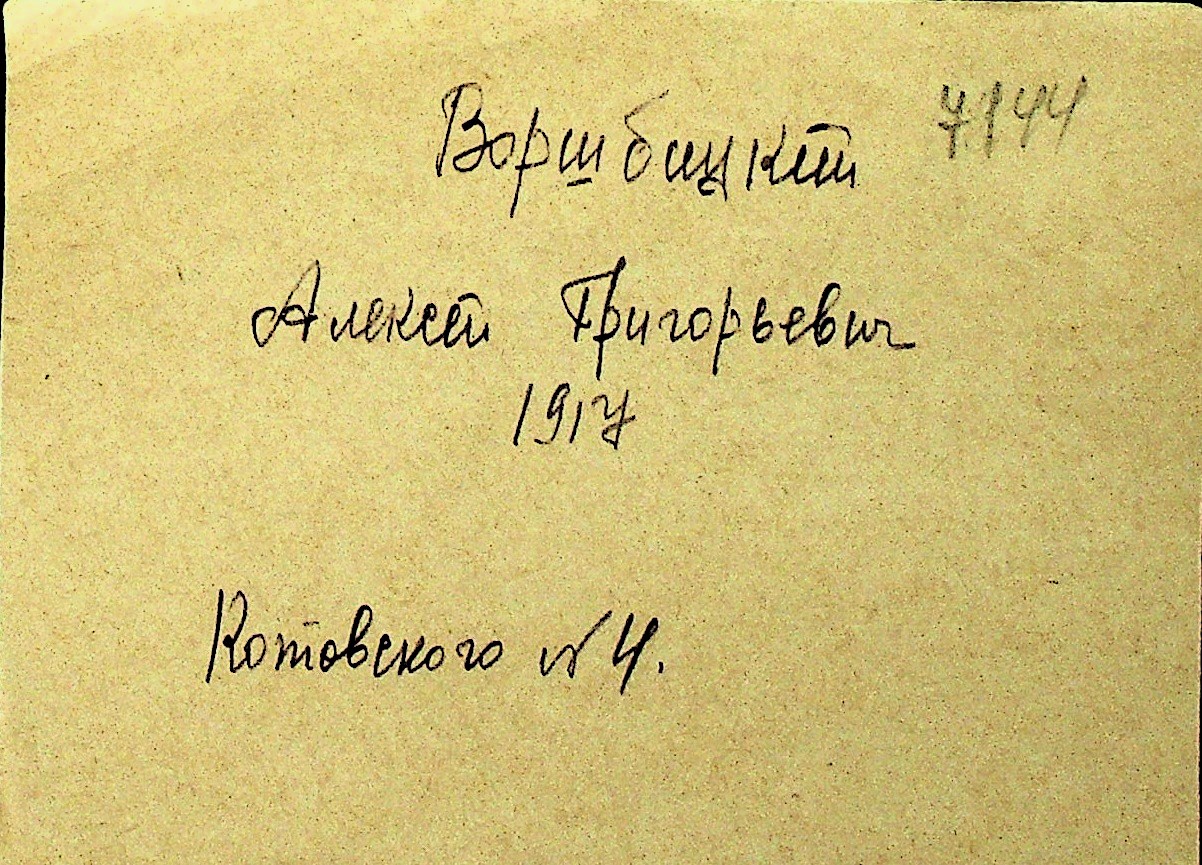 Воршбицкий 7144
Алексей Григорьевич
1917
Котовского № 4.